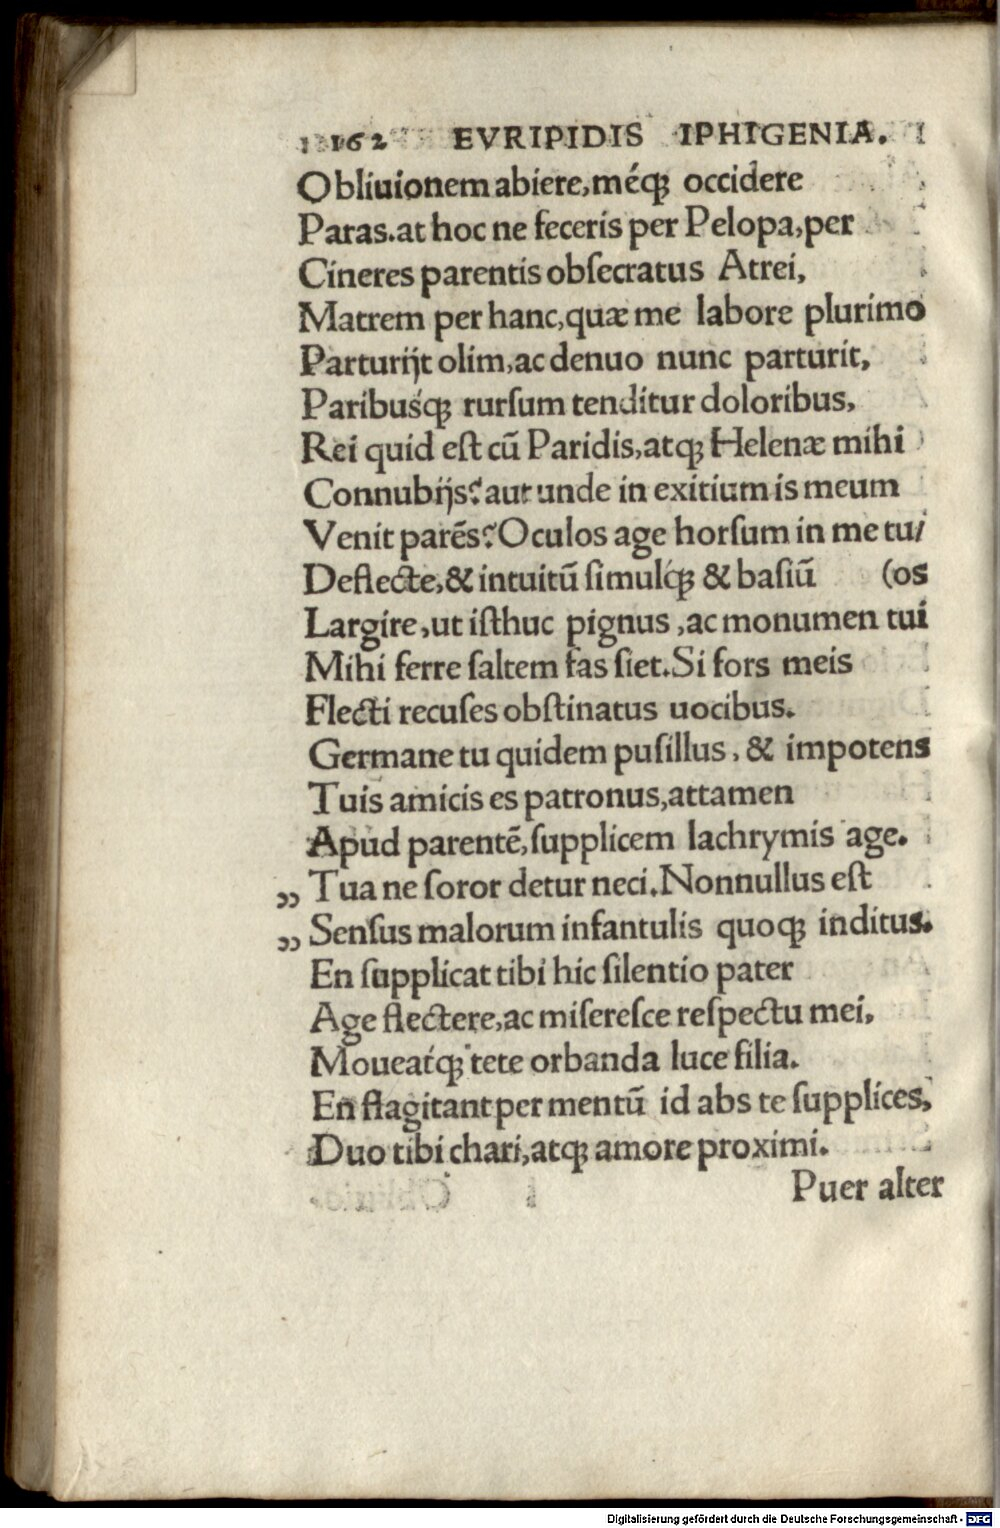 162 EVRIPIDIS IPHIGENIA.
Obliuionem abiere, méq; occidere
Paras. at hoc ne feceris per Pelopa, per
Cineres parentis obſecratus Atrei,
Matrem per hanc, quæ me labore plurimo
Parturijt olim, ac denuo nunc parturit,
Paribusq́; rurſum tenditur doloribus,
Rei quid eſt cũ Paridis, atq; Helenæ mihi
Connubijs? aut unde in exitium is meum
Venit parẽs? Oculos age horſum in me tu/
Deflecte, & intuitũ ſimulq́; & baſiũ (os
Largire, ut iſthuc pignus, ac monumen tui
Mihi ferre ſaltem fas ſiet. Si fors meis
Flecti recuſes obſtinatus uocibus.
Germane tu quidem puſillus, & impotens
Tuis amicis es patronus, attamen
Apud parentẽ, ſupplicem lachrymis age.
„ Tua ne ſoror detur neci. Nonnullus eſt
„ Senſus malorum infantulis quoq; inditus.
En ſupplicat tibi hic ſilentio pater
Age flectere, ac miſereſce reſpectu mei,
Moueatq́; tete orbanda luce filia.
En flagitant per mentũ id abs te ſupplices,
Duo tibi chari, atq; amore proximi.
Puer alter
Digitalisierung gefördert durch die Deutsche Forschungsgemeinschaft - DFG